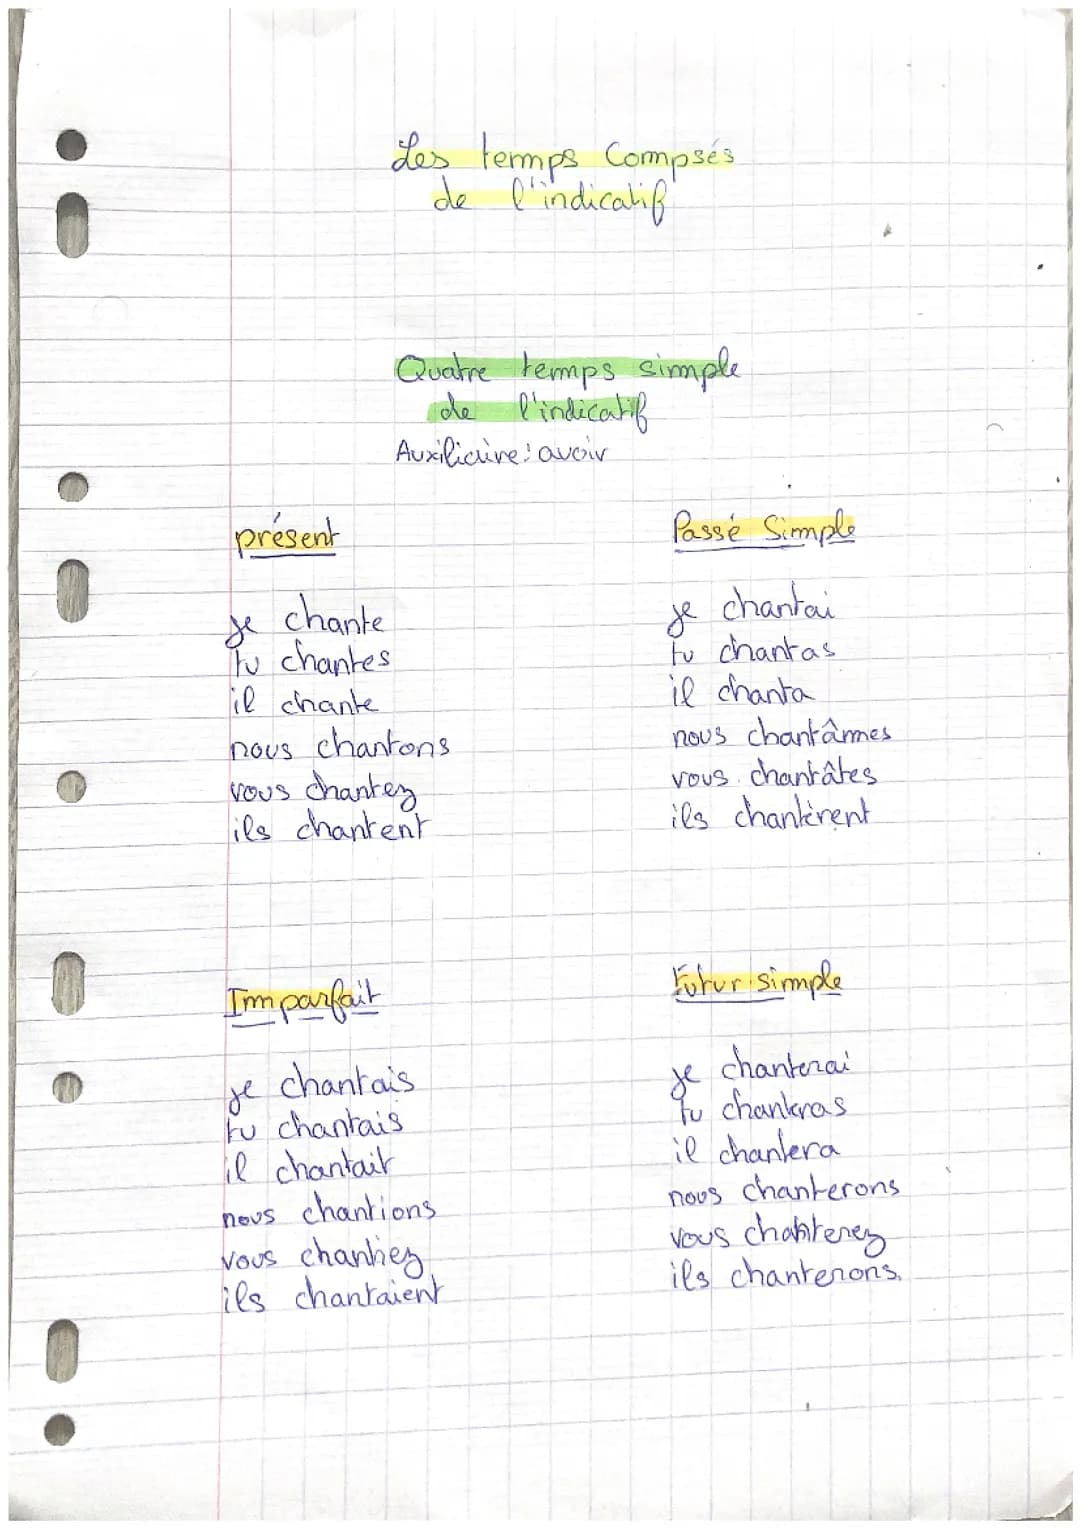 Les temps Compsés
de l'indicatif
Quatre temps simple
de l'indicatif
Auxiliaire : avoir
présent
je chante
tu chantes
il chante
nous chantons
vous chantez
ils chantent
Passé Simple
je chantai
tu chantas
il chanta
nous chantâmes
vous chantâtes
ils chantèrent
Imparfait
je chantais
tu chantais
il chantait
nous chantions
vous chantiez
ils chantaient
Futur simple
je chanterai
tu chanteras
il chantera
nous chanterons
vous chanterez
ils chanterons.